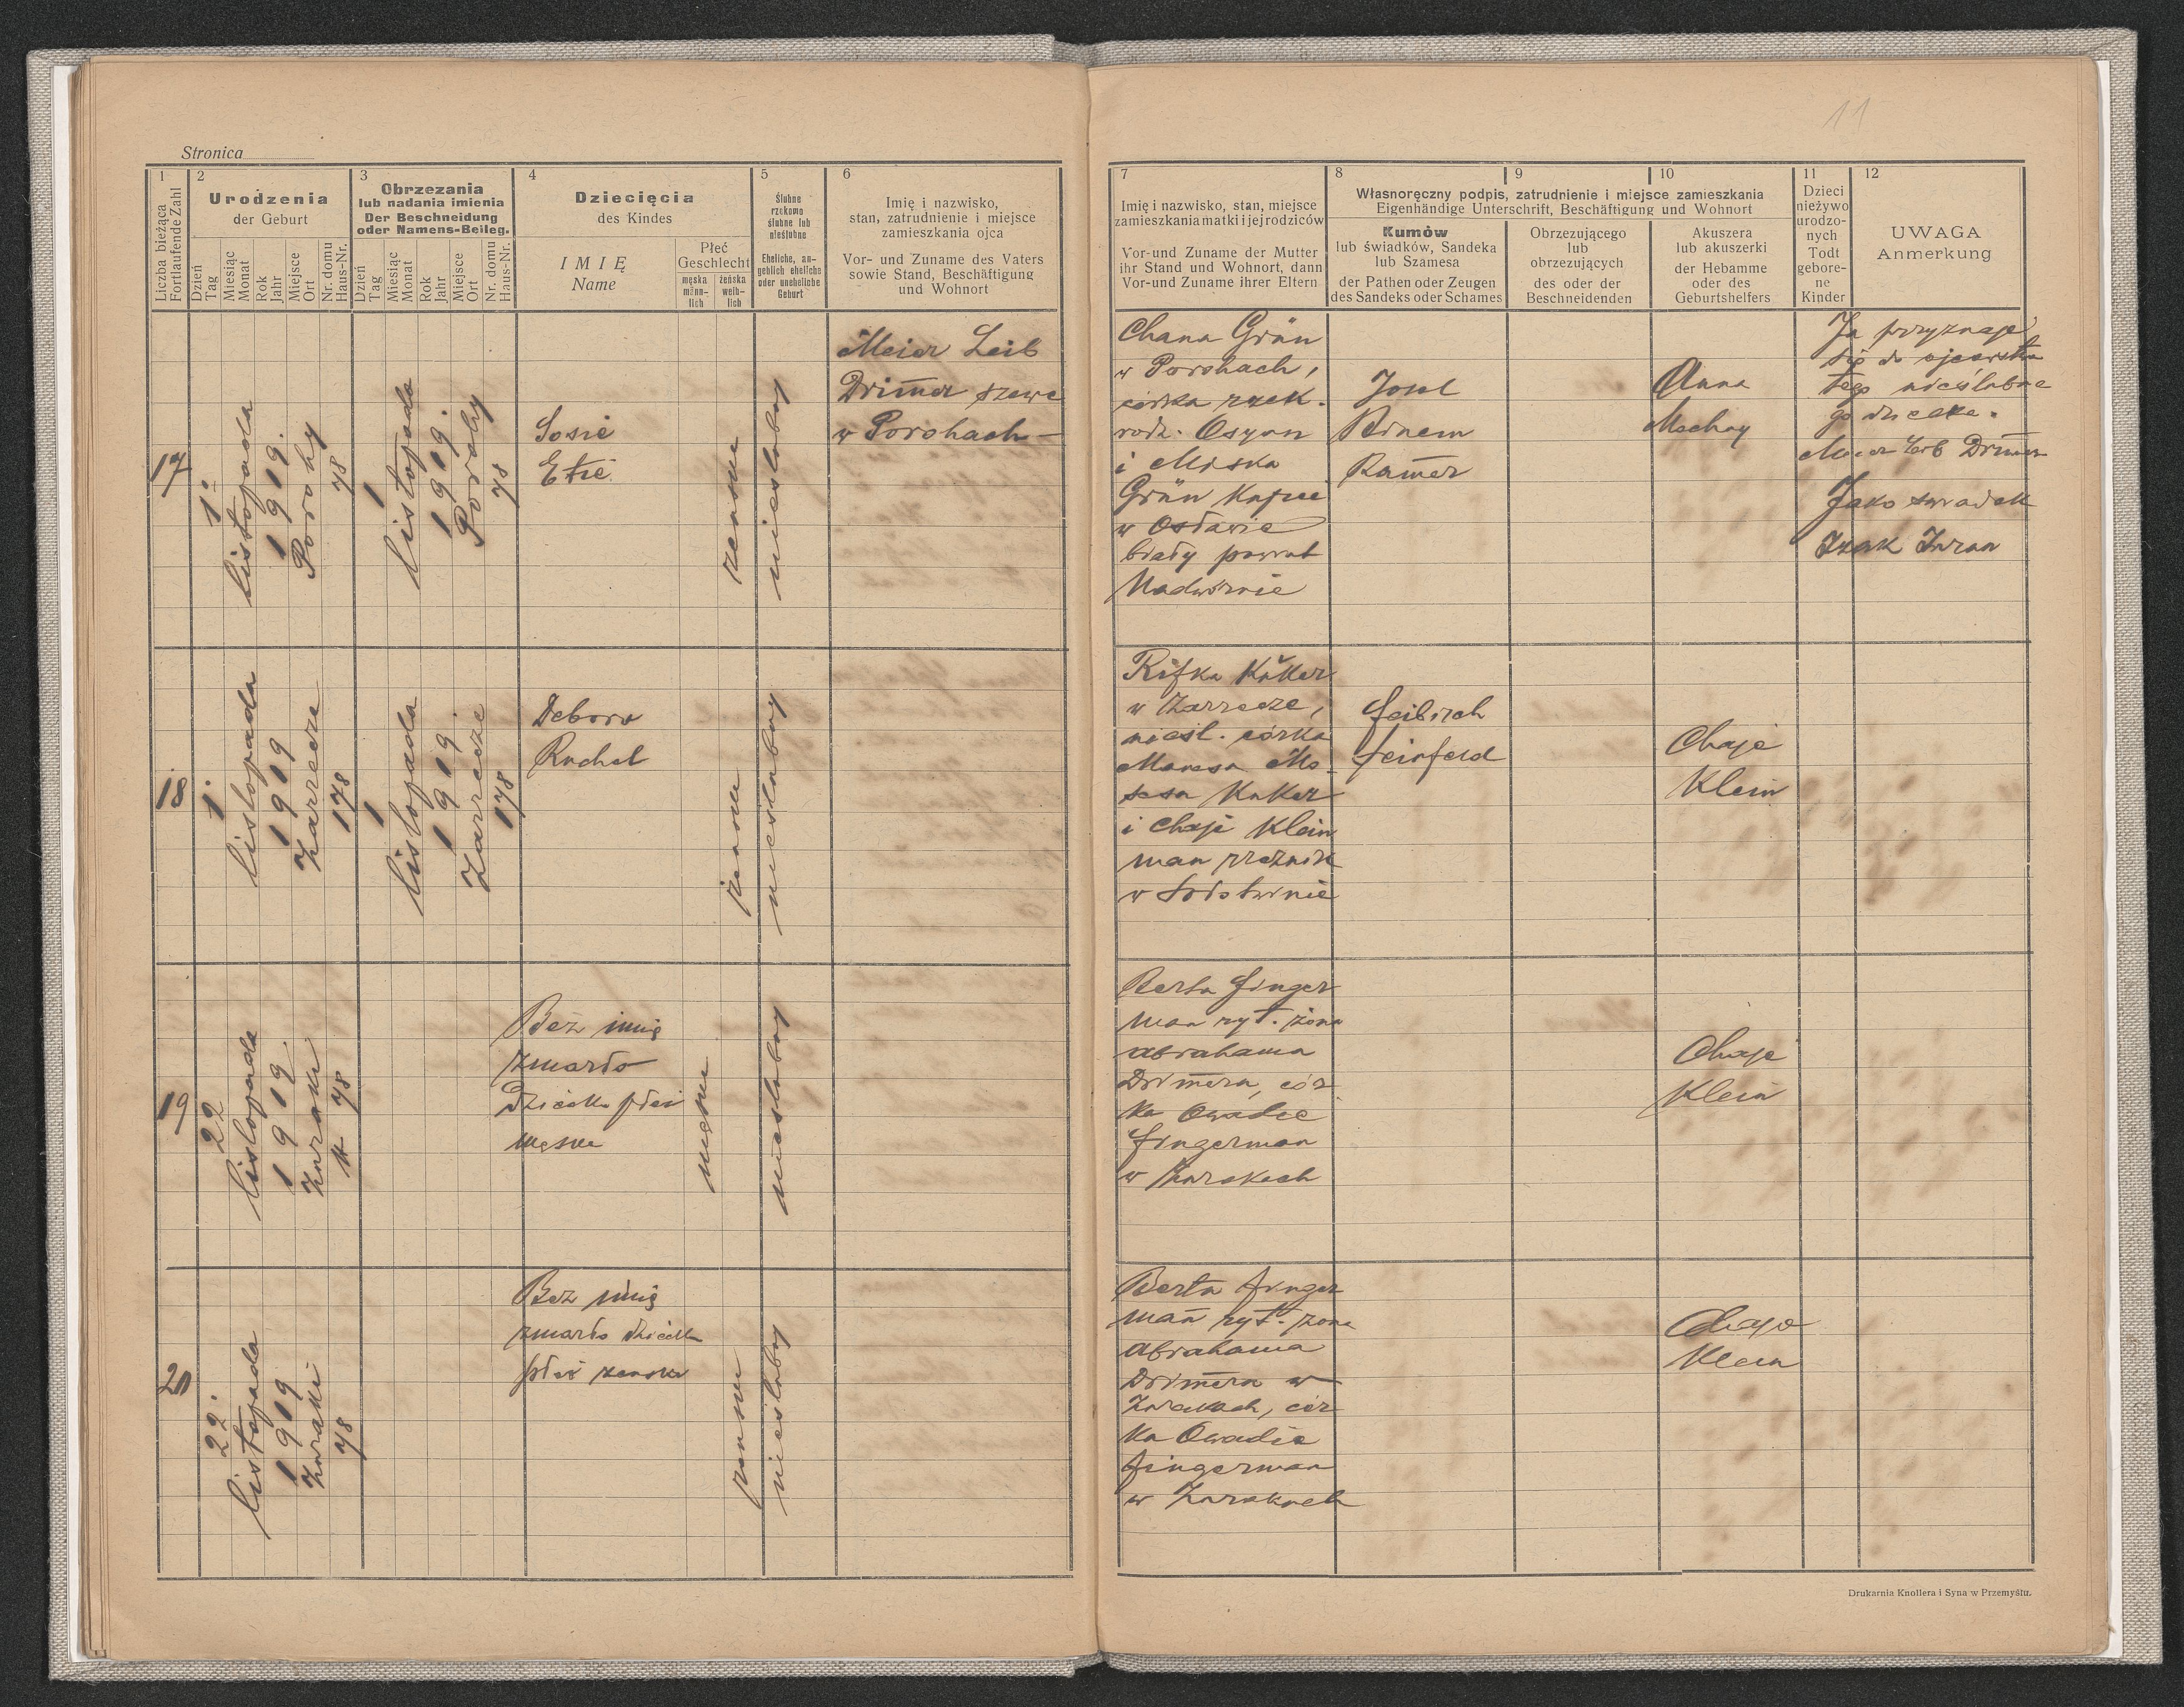 11
Stronica
1
2
3
4
5
6
Liczba bieżąca
Fortlaufende Zahl
Urodzenia
der Geburt
Dzień
Tag
Miesiąc
Monat
Rok
Jahr
Miejsce
Ort
Nr. domu
Haus-Nr.
Obrzezania
lub nadania imienia
Der Beschneidung
oder Namens-Beileg.
Dzień
Tag
Miesiąc
Monat
Rok
Jahr
Miejsce
Ort
Nr. domu
Haus-Nr.
Dziecięcia
des Kindes
IMIĘ
Name
Płeć
Geschlecht
męska
männ-
lich
żeńska
weib-
lich
Ślubne
rzekomo
ślubne lub
nieślubne
Eheliche, an-
geblich eheliche
oder uneheliche
Geburt
Imię i nazwisko,
stan, zatrudnienie i miejsce
zamieszkania ojca
Vor- und Zuname des Vaters
sowie Stand, Beschäftigung
und Wohnort
7
8
9
10
11
12
Imię i nazwisko, stan, miejsce
zamieszkania matki i jej rodziców
Vor-und Zuname der Mutter
ihr Stand und Wohnort, dann
Vor-und Zuname ihrer Eltern
Własnoręczny podpis, zatrudnienie i miejsce zamieszkania
Eigenhändige Unterschrift, Beschäftigung und Wohnort
Kumów
lub świadków, Sandeka
lub Szamesa
der Pathen oder Zeugen
des Sandeks oder Schames
Obrzezującego
lub
obrzezujących
des oder der
Beschneidenden
Akuszera
lub akuszerki
der Hebamme
oder des
Geburtshelfers
Dzieci
nieżywo
urodzo-
nych
Todt
gebore-
ne
Kinder
UWAGA
Anmerkung
17
1.
listopada
1919.
Porohy
78
1
listopada
1919.
Porohy
78
Sosie
Etie
żenska
nieslubny
Meier Leib
Drim̅er szewc
w Porohach
Chana Grün
w Porohach,
córka rzek.
rodz.
i
Grün
w Osławie
biały powiat
Nadwórnie
Josel
Binem
Ram̅er
Anna
Ja przyznaje
się do ojcostwa
tego nieślubne
go dziecka.
Meier Leib Drim̅er
Jako swiadek
Izak
18
1.
listopada
1919
Zarzecze
178
1
listopada
1919.
Zarzecze
178
Debora
Ruchel
żenska
nieslubny
Rifka Kuker
w Zarzecze,
nieśl. córka
Ma Mo-
sesa Kuker
i Chaje Klein
man rzeznik
w Sołotwinie
Leibisch
Feinfeld
Chaje
Klein
19
22
listopada
1919.
Zuraki
78
Bez imię
zmarło
Dziecko płci
męska
męska
nieslubny
Berta Finger
man ryt. żona
Abrahama
Drim̅era, cór
ka Owadie
Fingerman
w Zurakach
Chaje
Klein
20
22.
listopada
1919
Zuraki
78
Bez imię
zmarło dziecko
płci żenska
żenska
nieslubny
Berta Finger
man̅ ryt. żona
Abrahama
Drim̅era w
Zurakach, cór
ka Owadie
Fingerman
w Zurakach
Chaje
Klein
Drukarnia Knollera i Syna w Przemyślu.